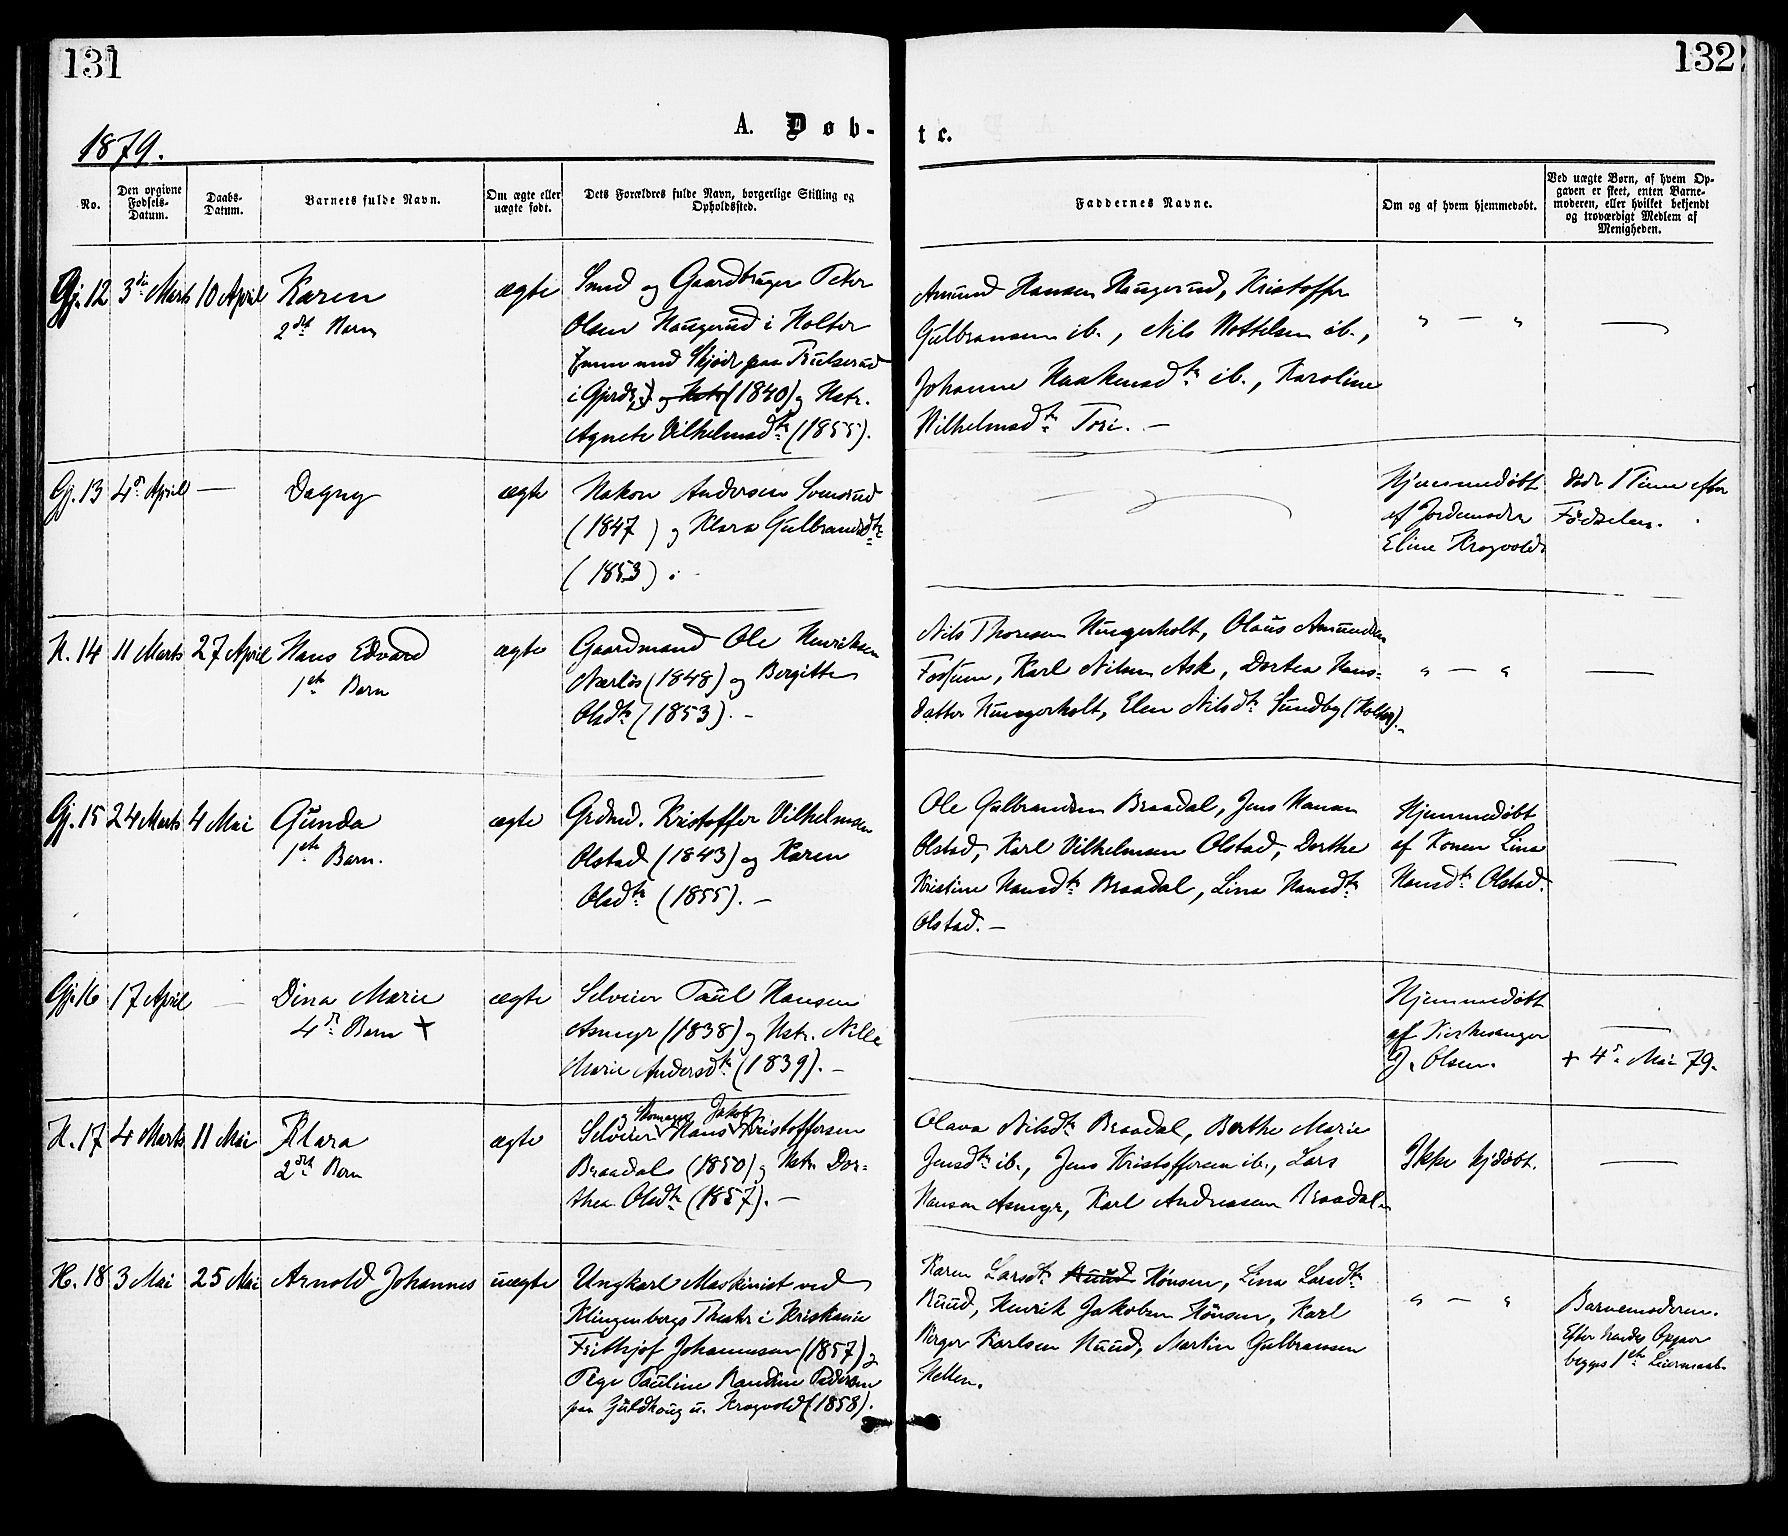 131
132
A. Døb-
te.
1879.
No.
Den opgivne
Fødsels-
Datum.
Daabs-
Datum.
Barnets fulde Navn.
Om ægte eller
uægte født.
Dets Forældres fulde Navn, borgerlige Stilling og
Opholdssted.
Faddernes Navne.
Om og af hvem hjemmedøbt.
Ved uægte Børn, af hvem Op-
gaven er skeet, enten Barne-
moderen, eller hvilket bekjendt
og troværdigt Medlem af
Menigheden.
Gj. 12
3die Marts
10 April
Karen
2det Barn
ægte
Smed og Gaardbruger Peter
Olsen Haugerud i Holter
med Skjøde paa Trulserud
i og (1840) og Hstr.
Agnete Vilhelmsdtr (1855).
Amund Hansen Haugerud, Kristoffer
Gulbransen ib., Nils ib.,
Johanne Haakensdtr ib., Karoline
Vilhelmsdtr —
" — "
—
Gj. 13
4de April
—
Dagny
ægte
Hakon Andersen
(1847) og Klara Gulbrandsdtr
(1853).
—
Hjemmedøbt
af Jordemoder
Eline Kragvold
døde 1 Time efter
Fødselen.
H. 14
11 Marts
27 April
Hans Edvard
1ste Barn
ægte
Gaardmand Ole Henriksen
Nærløs (1848) og Bergitte
Olsdtr (1853). —
Nils Thoresen Hungerholt, Olaus Amundsen
Fossum, Karl Nilsen Ask, Dortea Hans-
datter Hungerholt, Elen Nilsdtr Sundby (Holter).
" — "
—
Gj. 15
24 Marts
4 Mai
Gunda
1ste Barn.
ægte
Grdmd. Kristoffer Vilhelmsen
Olstad (1843) og Karen
Olsdtr (1855). —
Ole Gulbrandsen Braadal, Jens Hansen
Olstad, Karl Vilhelmsen Olstad, Dorthe
Kristine Hansdtr Braadal, Lina Hansdtr
Olstad. —
Hjemmedøbt
af Konen Lina
Hansdtr Olstad.
—
Gj. 16
17 April
—
Dina Marie
4de Barn +
ægte
Selveier Paul Hansen
Asmyr (1838) og Hstr. Nille
Marie Andersdtr (1839). —
—
Hjemmedøbt
af Kirkesanger
J. Olsen.
—
+ 4de Mai 79.
H. 17
4 Marts
11 Mai
Klara
2det Barn
ægte
Skomager Jakob
Selveier Hans Kristoffersen
Braadal (1850) og Hstr Dor-
thea Olsdtr (1857). —
Olava Nilsdtr Braadal, Berthe Marie
Jensdtr ib., Jens Kristoffersen ib., Lars
Hansen Asmyr, Karl Andreasen Braadal.
Ikke hjdøbt.
—
H. 18
3 Mai
25 Mai
Arnold Johannes
uægte
Ungkarl Maskinist ved
Klingenbergs Theater i Kristiania
Frithjof Johannesen (1857) og
Pige Pauline Randine Pedersen
paa Guldhaug u. Kragvold (1858).
Karen Larsdtr Ruud Hønsen, Lina Larsdtr
Ruud, Henrik Jakobsen Hønsen, Karl
Karlsen Ruud, Martin Gulbransen
Hellen.
" — "
Barnemoderen.
Efter hendes Opgave
begges 1ste Leiermaal.